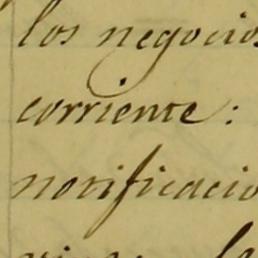 los negocios
corriente:
notificacio